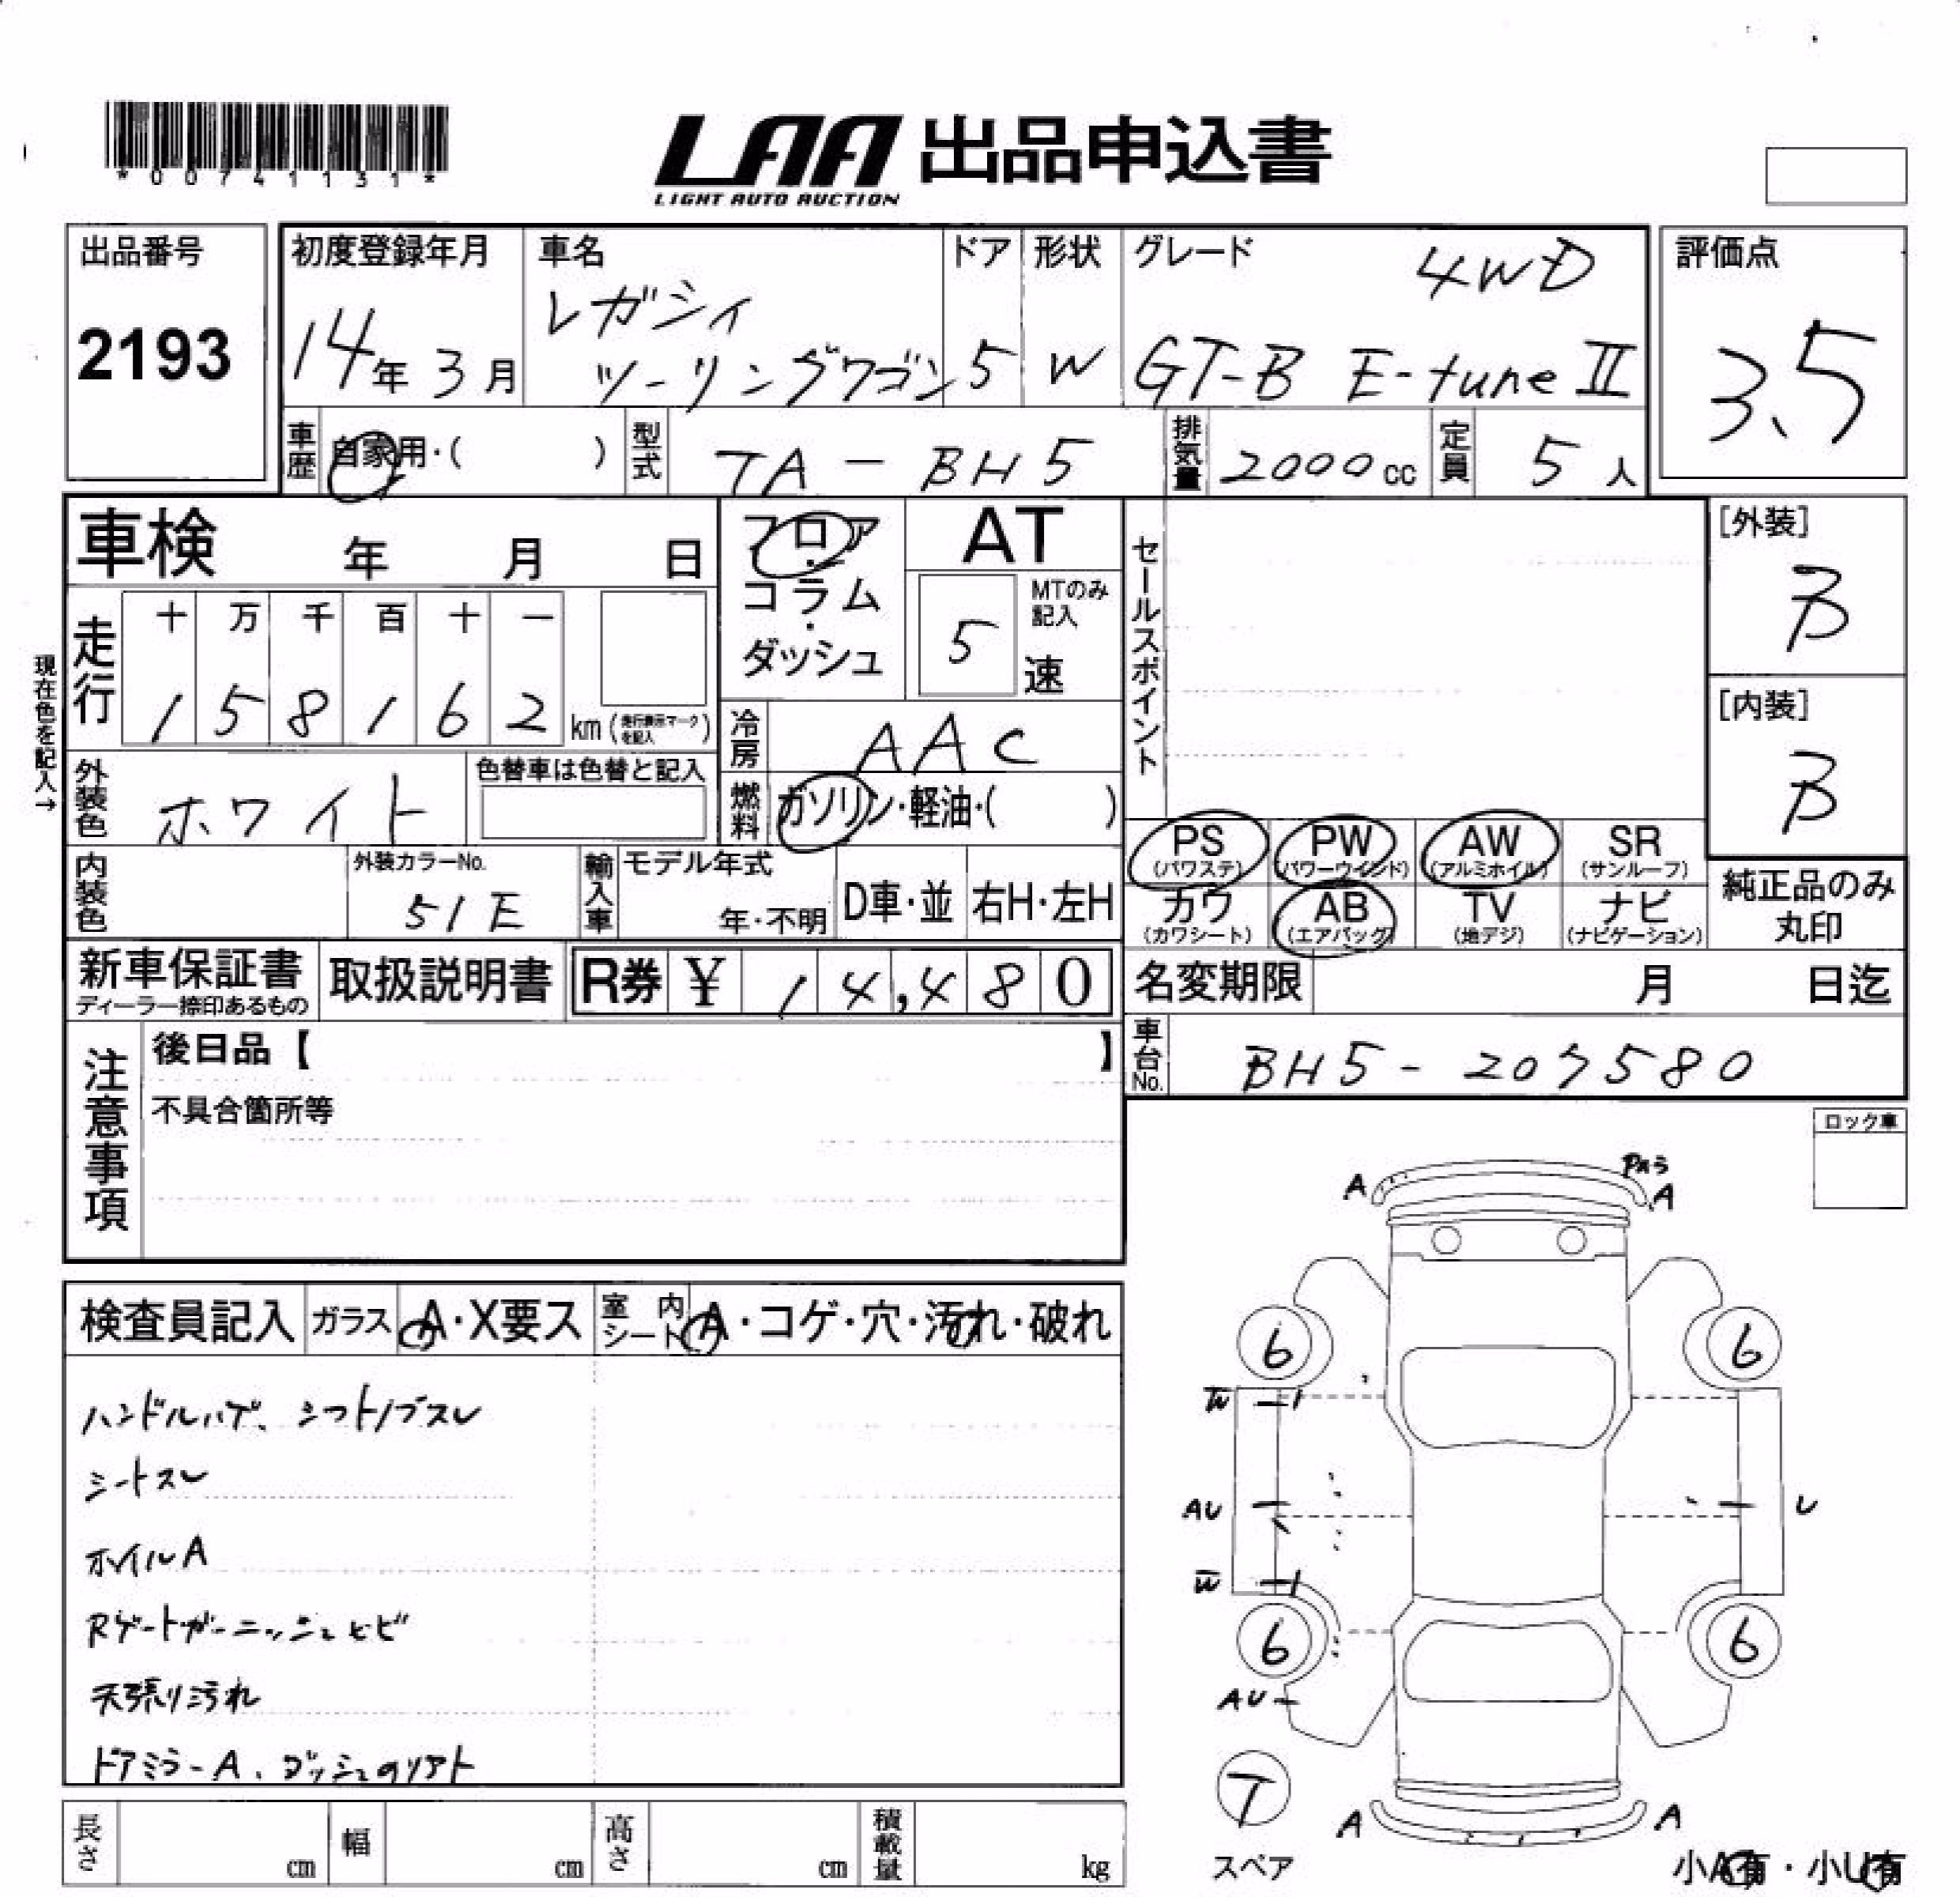 *0074131*
LAA 出品申込書
LIGHT AUTO AUCTION
出品番号
2193
初度登録年月
14年 3月
車名
レガシィ
ツーリングワゴン
ドア
5
形状
W
グレード
4WD
GT-B E-tune II
評価点
3.5
車歴
自家用・( )
型式
TA-BH5
排気量
2000 cc
定員
5 人
車検 年 月 日
フロア
・
コラム
・
ダッシュ
AT
MTのみ
記入
5 速
セールスポイント
[外装]
B
[内装]
B
現在色を記入→
走行
十 万 千 百 十 一
1 5 8 1 6 2 km (走行表示マークを記入)
冷房
AAC
外装色
ホワイト
色替車は色替と記入
燃料
ガソリン・軽油・( )
PS
(パワステ)
PW
(パワーウインド)
AW
(アルミホイル)
SR
(サンルーフ)
カワ
(カワシート)
AB
(エアバッグ)
TV
(地デジ)
ナビ
(ナビゲーション)
純正品のみ
丸印
内装色
外装カラーNo.
51E
輸入車
モデル年式
年・不明
D車・並
右H・左H
新車保証書
ディーラー捺印あるもの
取扱説明書
R券 ¥ 14,480
名変期限 月 日迄
車台No.
BH5-207580
注意事項
後日品【 】
不具合箇所等
ロック車
検査員記入
ガラス
A・X要ス
室内
シート
A・コゲ・穴・汚れ・破れ
ハンドルハゲ、シフトノブスレ
シートスレ
ホイルA
Rゲートガーニッシュヒビ
天張り汚れ
ドアミラーA、
A
A
6
6
W
AU
U
W
6
6
AU
T
スペア
A
A
小A有・小U有
長さ cm
幅 cm
高さ cm
積載量 kg